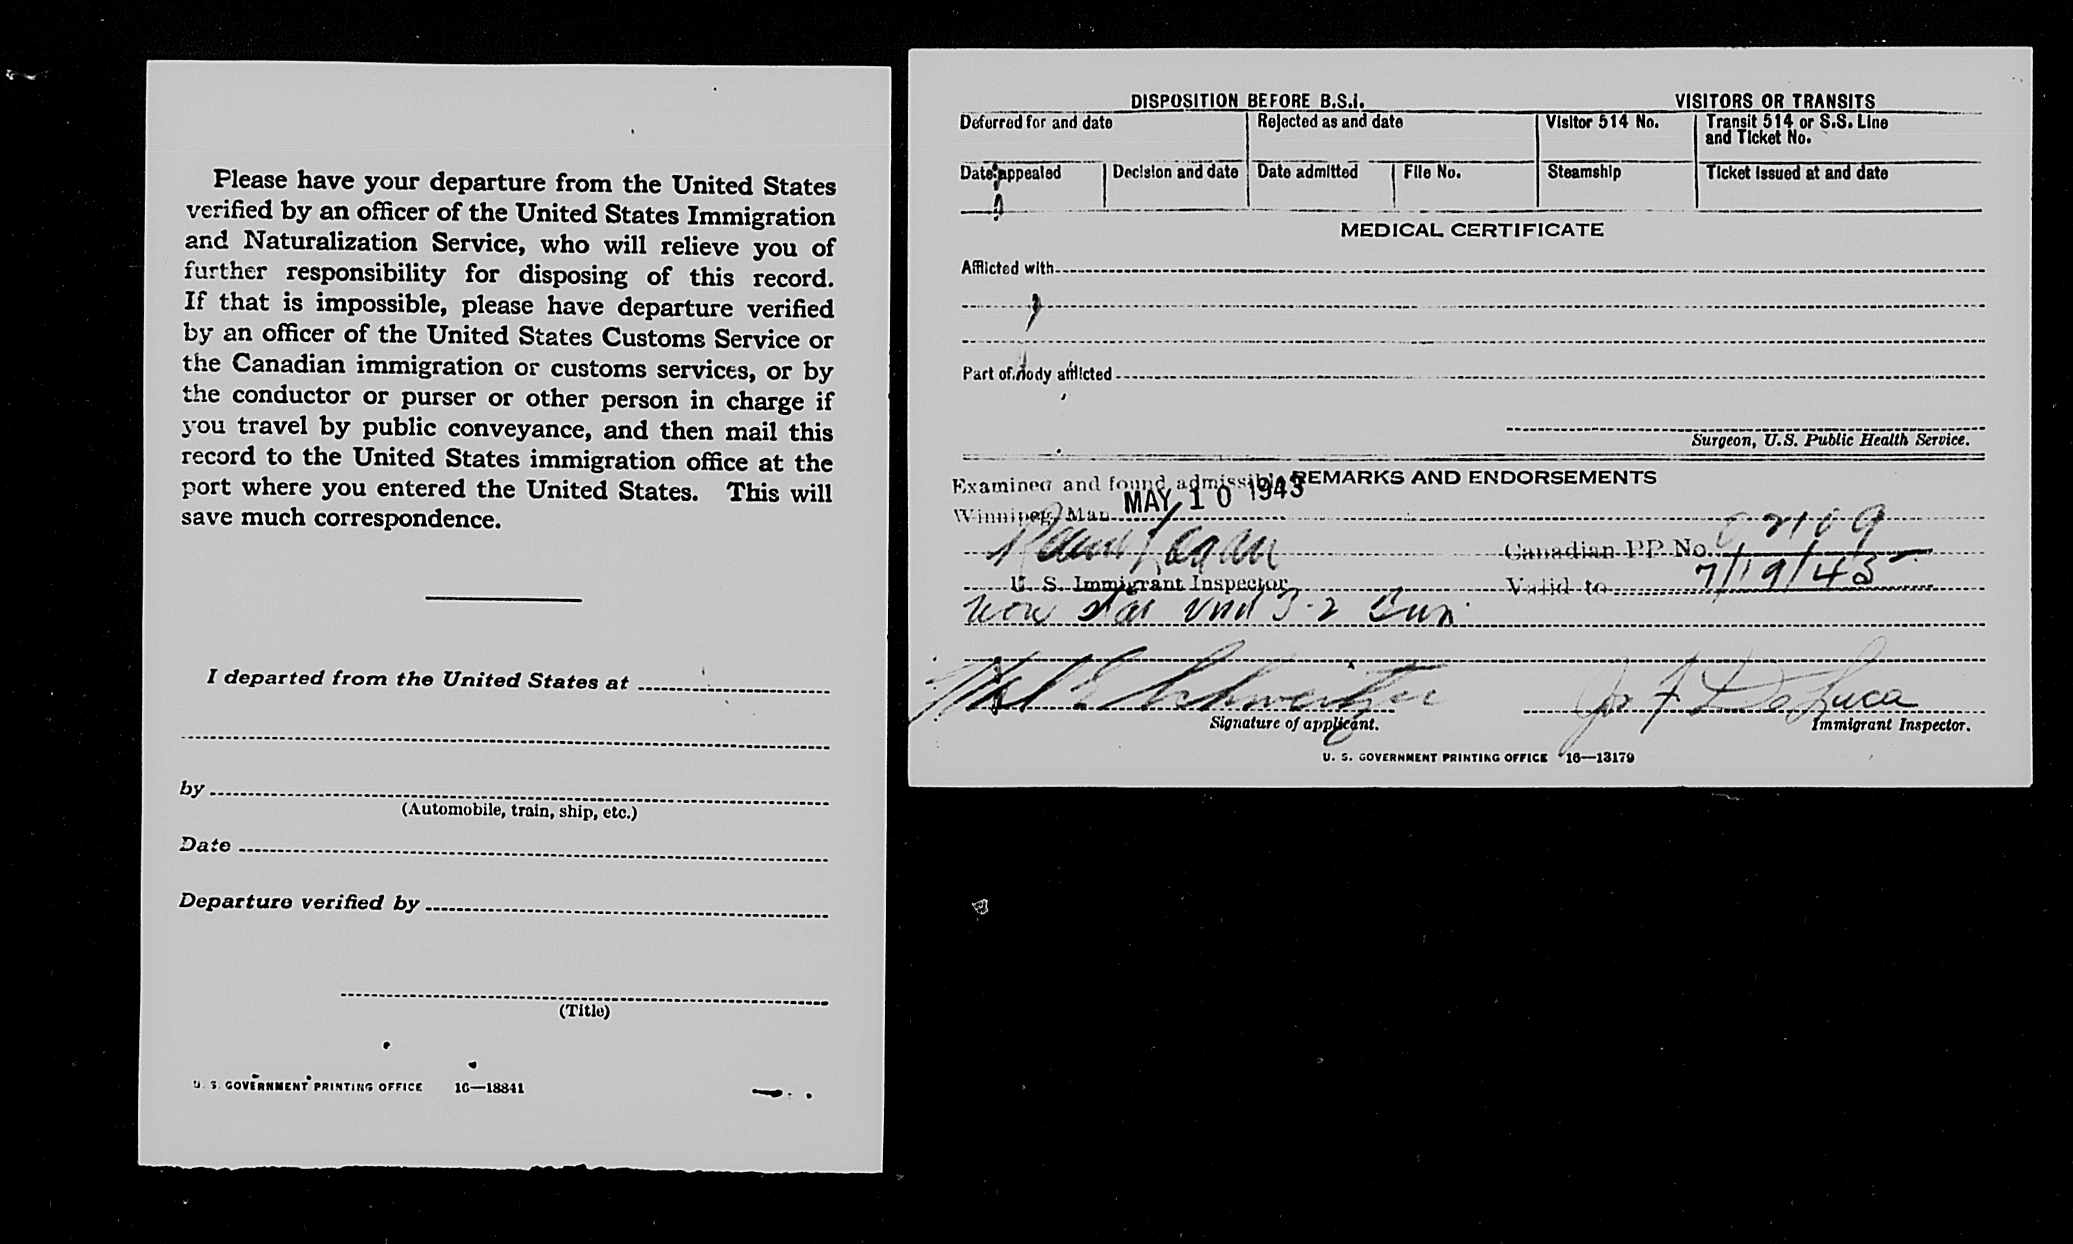 Please have your departure from the United States
verified by an officer of the United States Immigration
and Naturalization Service, who will relieve you of
further responsibility for disposing of this record.
If that is impossible, please have departure verified
by an officer of the United States Customs Service or
the Canadian immigration or customs services, or by
the conductor or purser or other person in charge if
you travel by public conveyance, and then mail this
record to the United States immigration office at the
port where you entered the United States. This will
save much correspondence.
I departed from the United States at
by
(Automobile, train, ship, etc.)
Date
Departure verified by
(Title)
U. S. GOVERNMENT PRINTING OFFICE 16—18841
DISPOSITION BEFORE B.S.I. VISITORS OR TRANSITS
Deferred for and date Rejected as and date Visitor 514 No. Transit 514 or S.S. Line
and Ticket No.
Date appealed Decision and date Date admitted File No. Steamship Ticket issued at and date
MEDICAL CERTIFICATE
Afflicted with
Part of body afflicted
Surgeon, U.S. Public Health Service.
REMARKS AND ENDORSEMENTS
Examined and found admissible
Winnipeg, Man. MAY 10 1943
Canadian PP No. 02109
U. S. Immigrant Inspector Valid to 7/19/45
Jos F DeLuca
Signature of applicant. Immigrant Inspector.
U. S. GOVERNMENT PRINTING OFFICE 16—13179